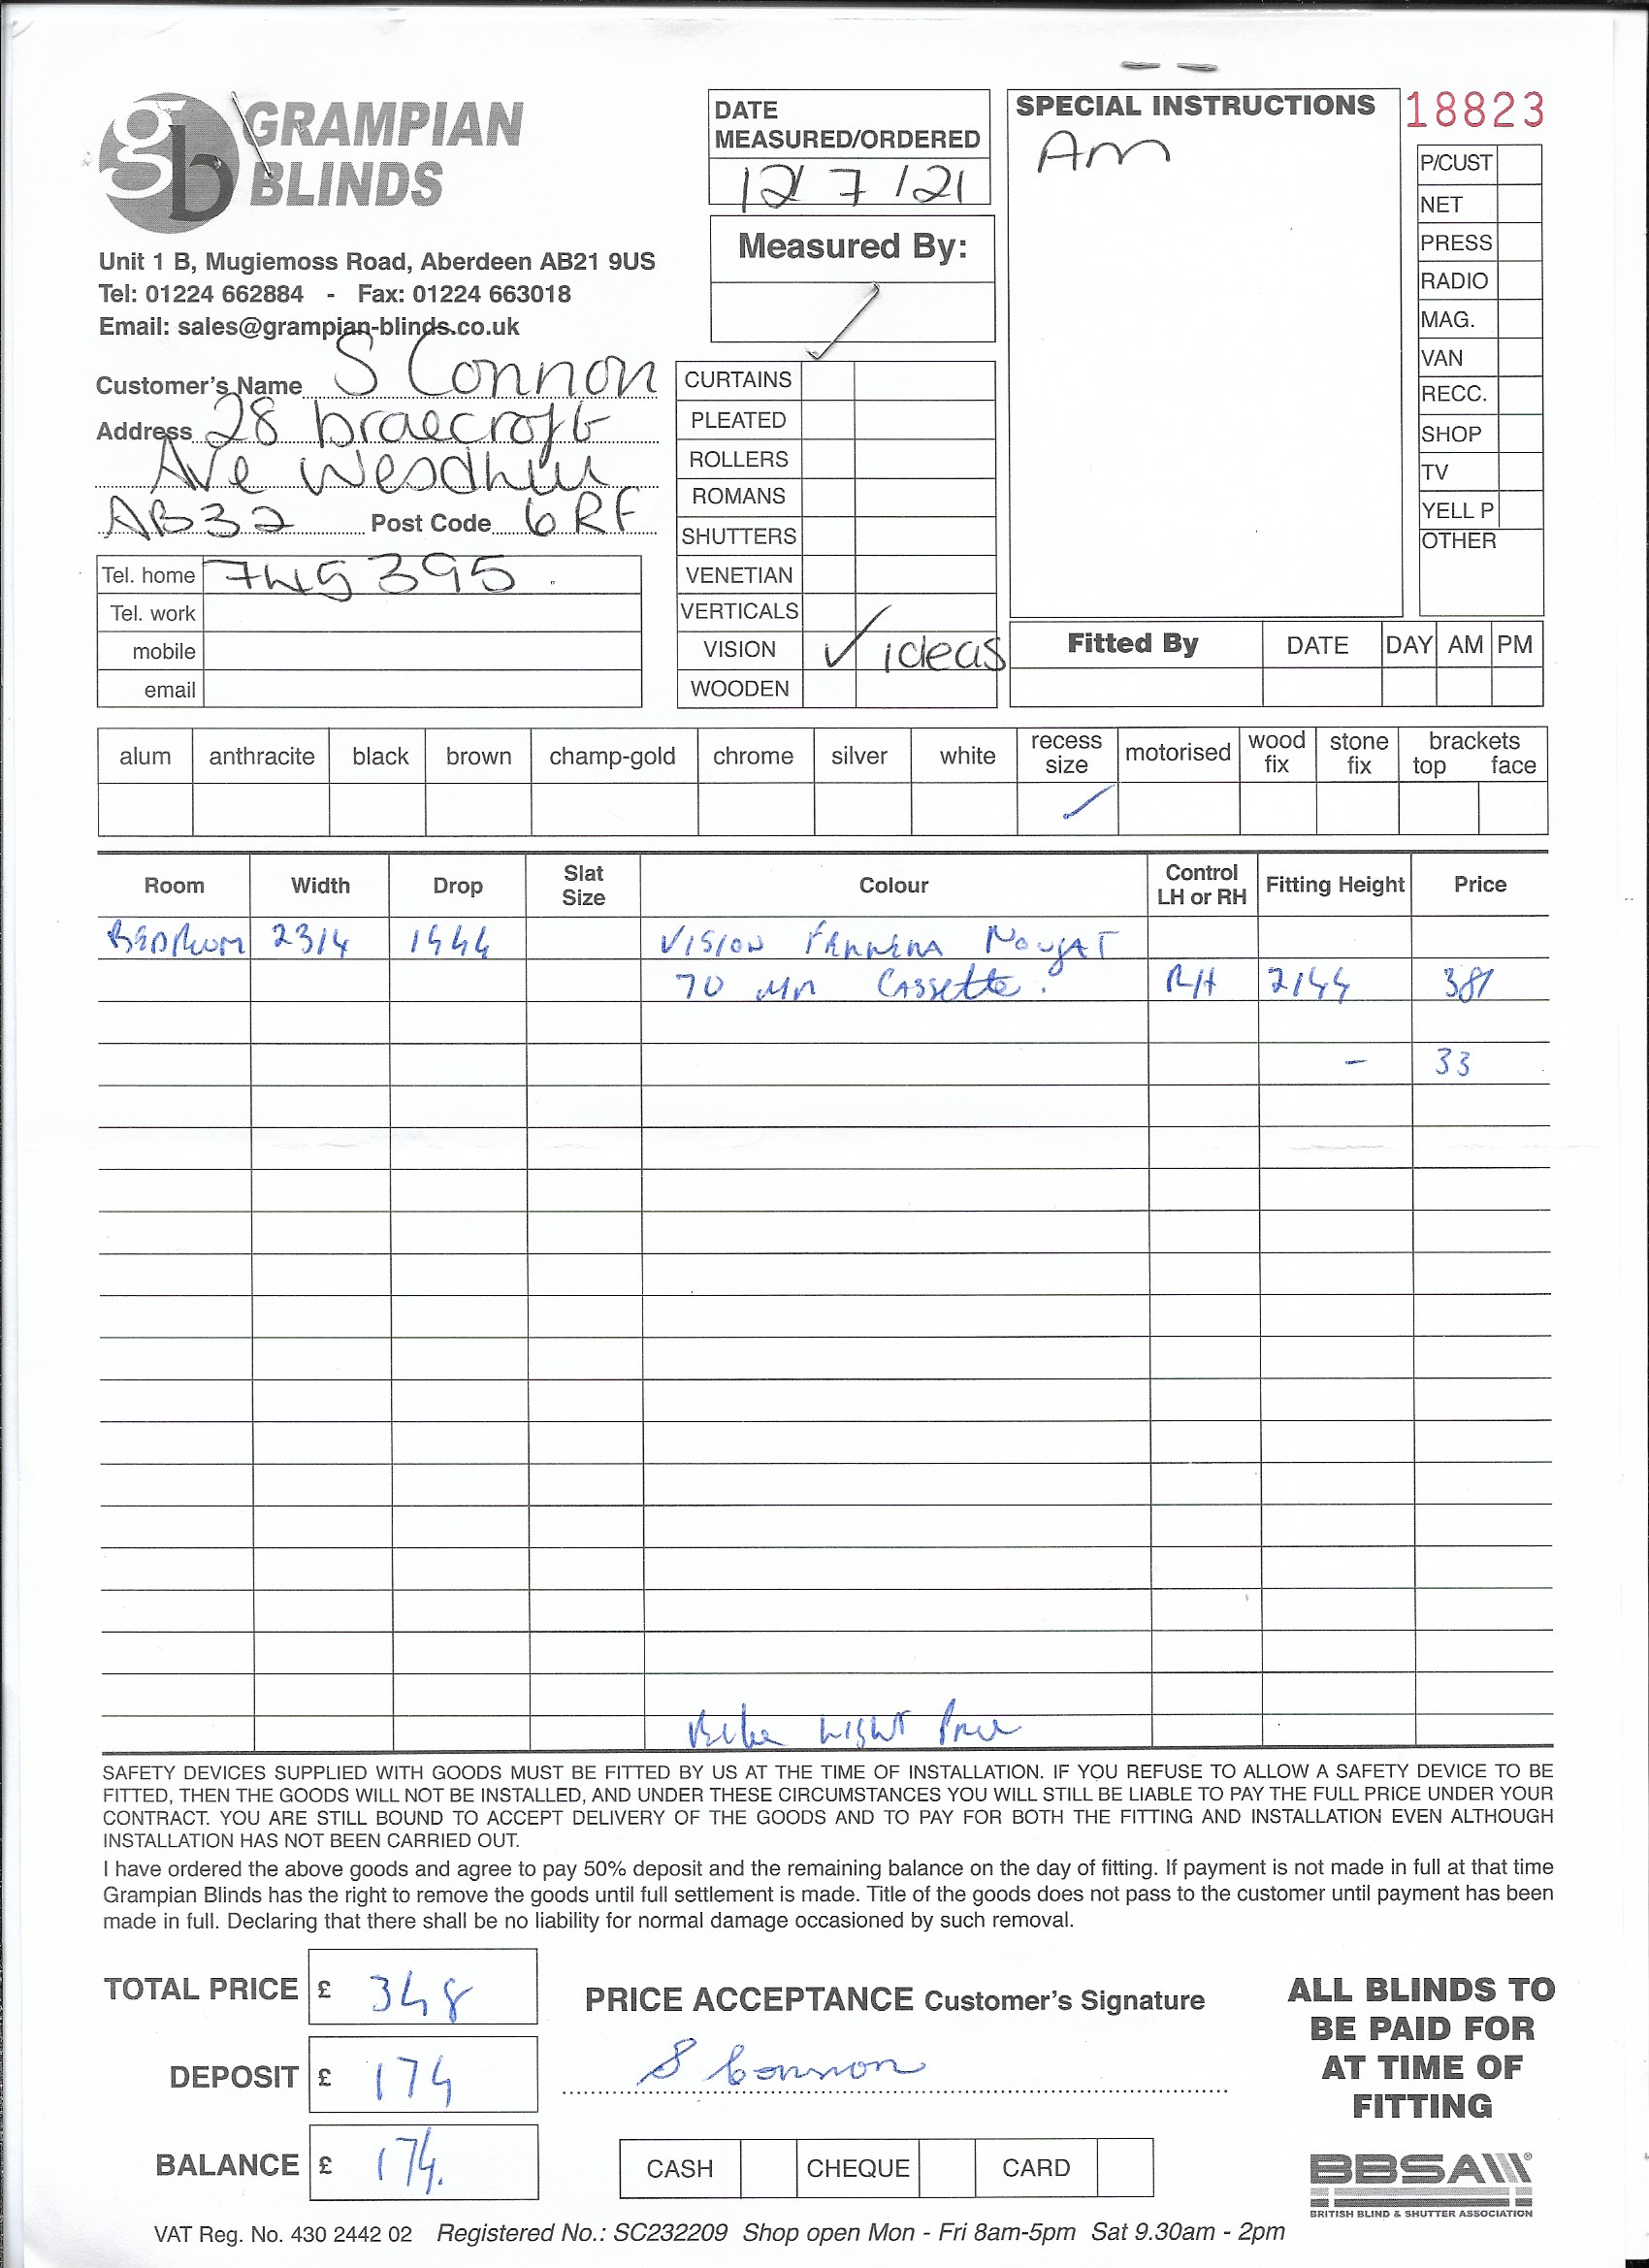 18823
gb GRAMPIAN
BLINDS
Unit 1 B, Mugiemoss Road, Aberdeen AB21 9US
Tel: 01224 662884 - Fax: 01224 663018
Email: sales@grampian-blinds.co.uk
Customer's Name S Connon
Address 28 braecroft
Ave Wesdhill
AB32 Post Code 6RF
Tel. home 745395
Tel. work
mobile
email
DATE
MEASURED/ORDERED
12/7/21
Measured By:
CURTAINS
PLEATED
ROLLERS
ROMANS
SHUTTERS
VENETIAN
VERTICALS
VISION ✓ ideas
WOODEN
SPECIAL INSTRUCTIONS
Am
P/CUST
NET
PRESS
RADIO
MAG.
VAN
RECC.
SHOP
TV
YELL P
OTHER
Fitted By DATE DAY AM PM
alum anthracite black brown champ-gold chrome silver white recess size motorised wood fix stone fix brackets top face
Room Width Drop Slat Size Colour Control LH or RH Fitting Height Price
BEDROOM 2314 1444 VISION Nougat
70 mm Cassette. RH 2144 381
- 33
LIGHT Price
SAFETY DEVICES SUPPLIED WITH GOODS MUST BE FITTED BY US AT THE TIME OF INSTALLATION. IF YOU REFUSE TO ALLOW A SAFETY DEVICE TO BE
FITTED, THEN THE GOODS WILL NOT BE INSTALLED, AND UNDER THESE CIRCUMSTANCES YOU WILL STILL BE LIABLE TO PAY THE FULL PRICE UNDER YOUR
CONTRACT. YOU ARE STILL BOUND TO ACCEPT DELIVERY OF THE GOODS AND TO PAY FOR BOTH THE FITTING AND INSTALLATION EVEN ALTHOUGH
INSTALLATION HAS NOT BEEN CARRIED OUT.
I have ordered the above goods and agree to pay 50% deposit and the remaining balance on the day of fitting. If payment is not made in full at that time
Grampian Blinds has the right to remove the goods until full settlement is made. Title of the goods does not pass to the customer until payment has been
made in full. Declaring that there shall be no liability for normal damage occasioned by such removal.
TOTAL PRICE £ 348
DEPOSIT £ 174
BALANCE £ 174.
PRICE ACCEPTANCE Customer's Signature
S Connon
CASH CHEQUE CARD
ALL BLINDS TO
BE PAID FOR
AT TIME OF
FITTING
BBSA
BRITISH BLIND & SHUTTER ASSOCIATION
VAT Reg. No. 430 2442 02 Registered No.: SC232209 Shop open Mon - Fri 8am-5pm Sat 9.30am - 2pm